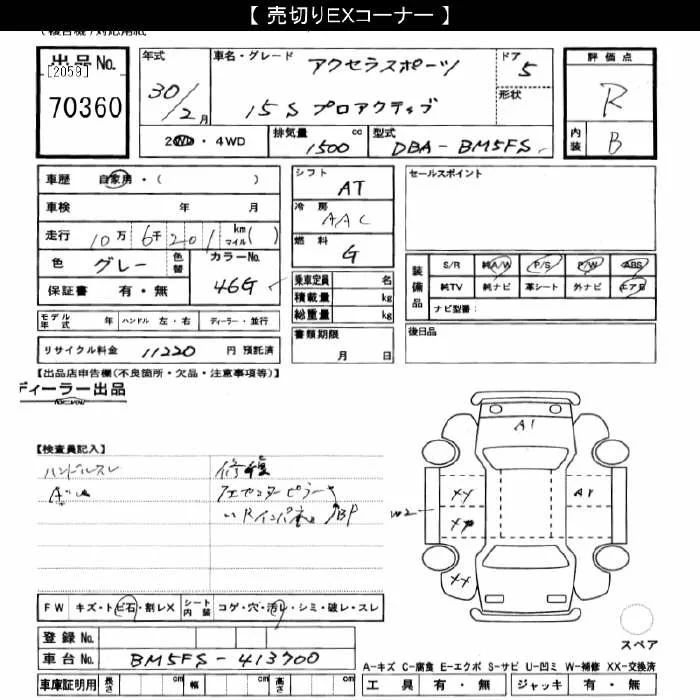 【 売切りEXコーナー 】
出品No. [2059] 70360
年式 30/2月
車名・グレード アクセラスポーツ 15S プロアクティブ
ドア 5
形状
評価点 R
内装 B
2WD・4WD
排気量 1500 cc
型式 DBA-BM5FS
車歴 自家用・( )
車検 年 月
走行 10万 6千 201 km マイル( )
色 グレー 色替 カラーNo. 46G
保証書 有・無
モデル年式 年 ハンドル 左・右 ディーラー・並行
リサイクル料金 11220 円 預託済
シフト AT
冷房 AAC
燃料 G
乗車定員 名
積載量 kg
総重量 kg
書類期限 月 日
セールスポイント
装備品 S/R 純A/W P/S P/W ABS
純TV 純ナビ 革シート 外ナビ エアB
ナビ型番:
後日品
【出品店申告欄(不良箇所・欠品・注意事項等)】
ディーラー出品
【検査員記入】
ハンドルスレ
修復
A1
XY
AY
W2
XX
FW キズ・トビ石・割レX シート内装 コゲ・穴・汚レ・シミ・破レ・スレ
登録No.
車台No. BM5FS-413700
車庫証明用 長さ cm 幅 cm 高さ cm
スペア
A-キズ C-腐食 E-エクボ S-サビ U-凹ミ W-補修 XX-交換済
工具 有・無 ジャッキ 有・無